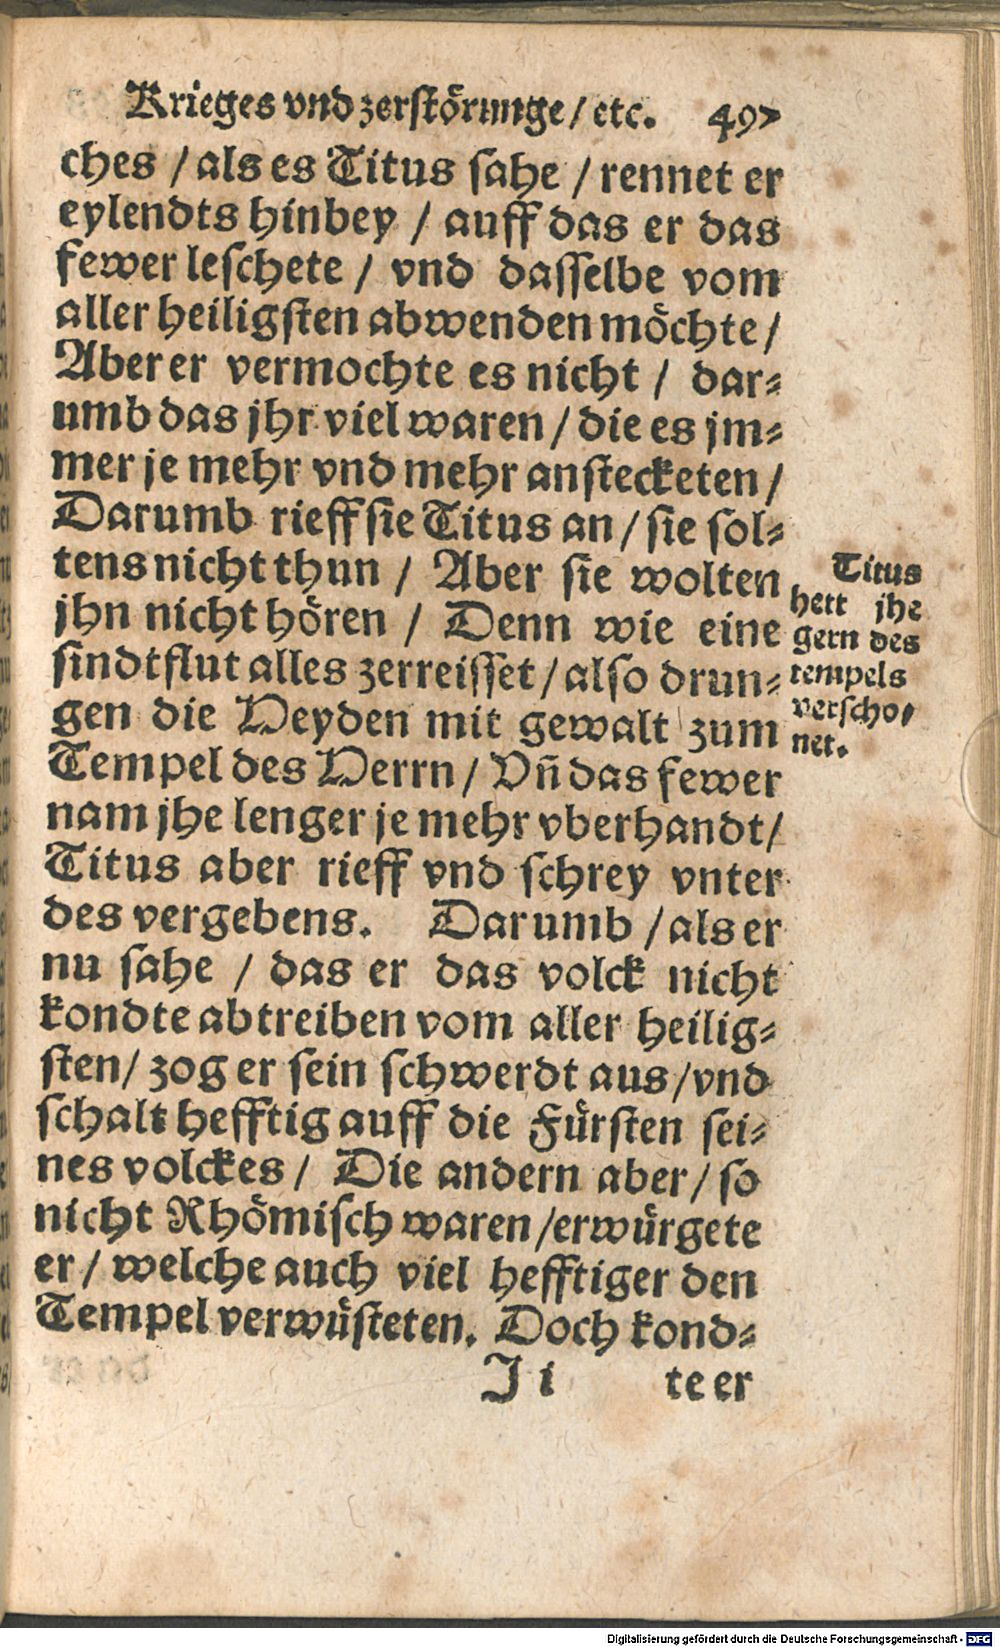 Krieges vnd zerstörunge / etc. 497
ches / als es Titus sahe / rennet er
eylendts hinbey / auff das er das
fewer leschete / vnd dasselbe vom
aller heiligsten abwenden möchte /
Aber er vermochte es nicht / dar⸗
umb das jhr viel waren / die es jm⸗
mer je mehr vnd mehr anstecketen /
Darumb rieff sie Titus an / sie sol⸗
tens nicht thun / Aber sie wolten
jhn nicht hören / Denn wie eine
sindtflut alles zerreisset / also drun⸗
gen die Heyden mit gewalt zum
Tempel des Herrn / Vn̄ das fewer
nam jhe lenger je mehr vberhandt /
Titus aber rieff vnd schrey vnter
des vergebens. Darumb / als er
nu sahe / das er das volck nicht
kondte abtreiben vom aller heilig⸗
sten / zog er sein schwerdt aus / vnd
schalt hefftig auff die Fürsten sei⸗
nes volckes / Die andern aber / so
nicht Rhömisch waren / erwürgete
er / welche auch viel hefftiger den
Tempel verwüsteten. Doch kond⸗
J i te er
Titus
hett jhe
gern des
tempels
verscho⸗
net.
Digitalisierung gefördert durch die Deutsche Forschungsgemeinschaft - DFG